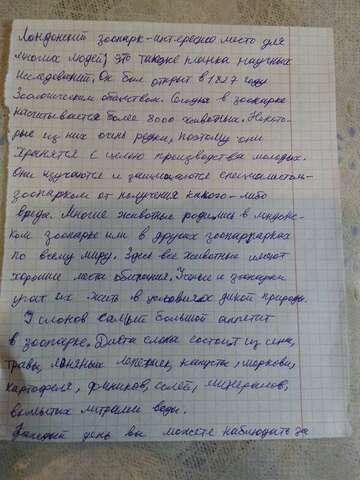 Лондонский зоопарк - интересное место для
многих людей, это также рынка научных
исследований. Он был открыт в 1827 году
Зоологическим обществом. Сегодня в зоопарке
насчитывается более 8000 животных. Некото-
рые из них очень редки, поэтому они
хранятся с целью производства молодых.
Они изучаются и защищаются специалистом-
зоопарком от получения какого-либо
вреда. Многие животные родились в лондонс-
ком зоопарке или в других зооппарках
по всему миру. Здесь все животные имеют
хорошие места обитания. Ученые и зоопарки
учат их жить в условиях дикой природы.
У слонов самый большой аппетит
в зоопарке. Диета слона состоит из сена,
травы, льняных лепешек, капусты, моркови,
картофеля, фиников, солей, минералов,
вымытых литрами воды.
Каждый день вы можете наблюдать за